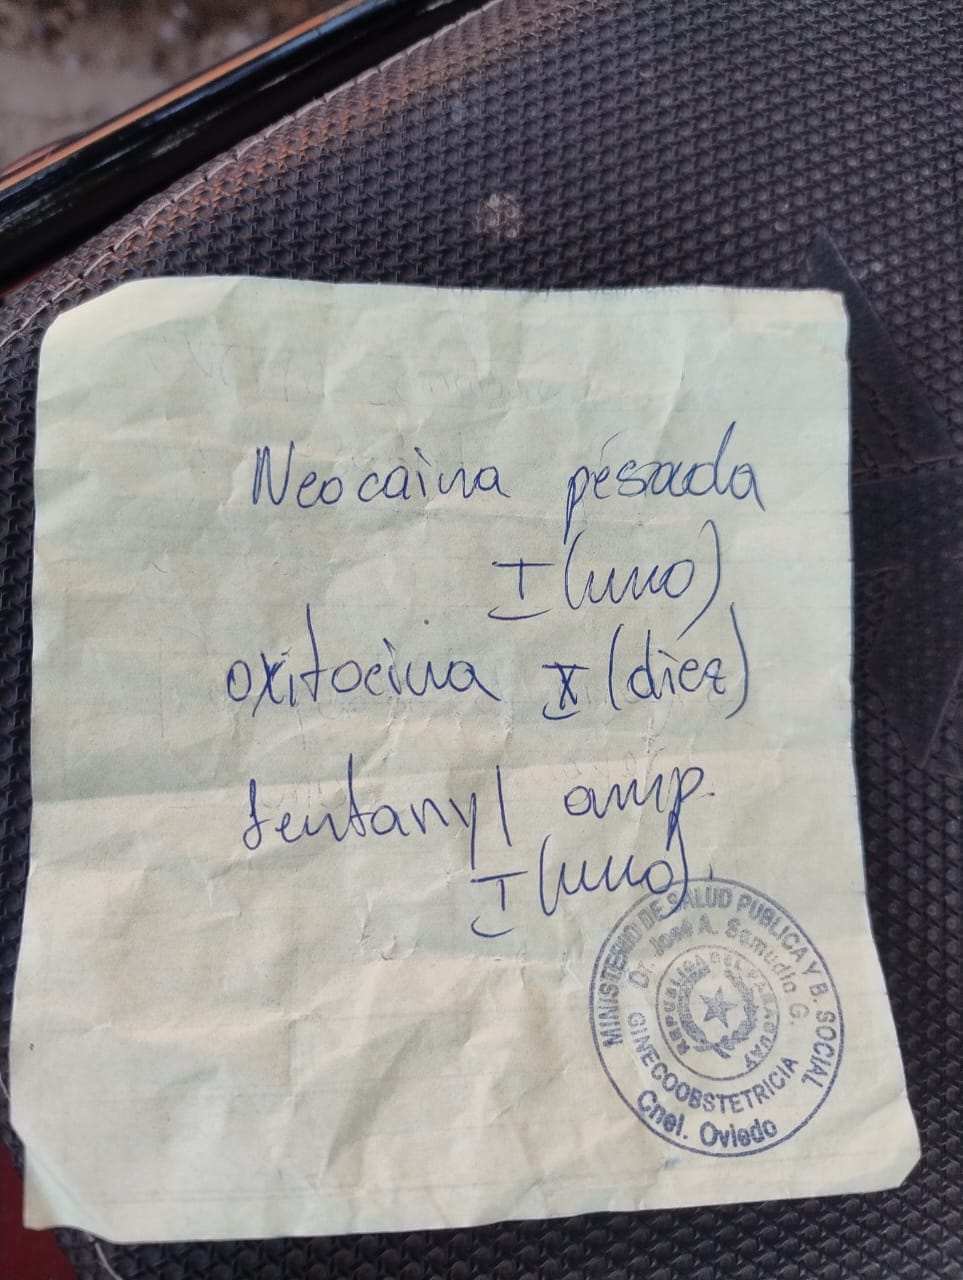 Neocaina pesada
I (uno)
oxitocina X (diez)
fentanyl amp.
I (uno).
MINISTERIO DE SALUD PUBLICA Y B. SOCIAL
Dr. José A. Samudio G.
REPUBLICA DEL PARAGUAY
GINECOOBSTETRICIA
Cnel. Oviedo